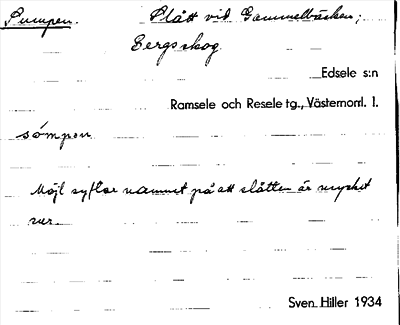 Pumpen. Slått vid Gammelbäcken;
Bergsskog
Edsele s:n
Ramsele och Resele tg., Västernorrl. l.
sómpen
Möjl syftar namnet på att slåtten är mycket
sur.
Sven Hiller 1934